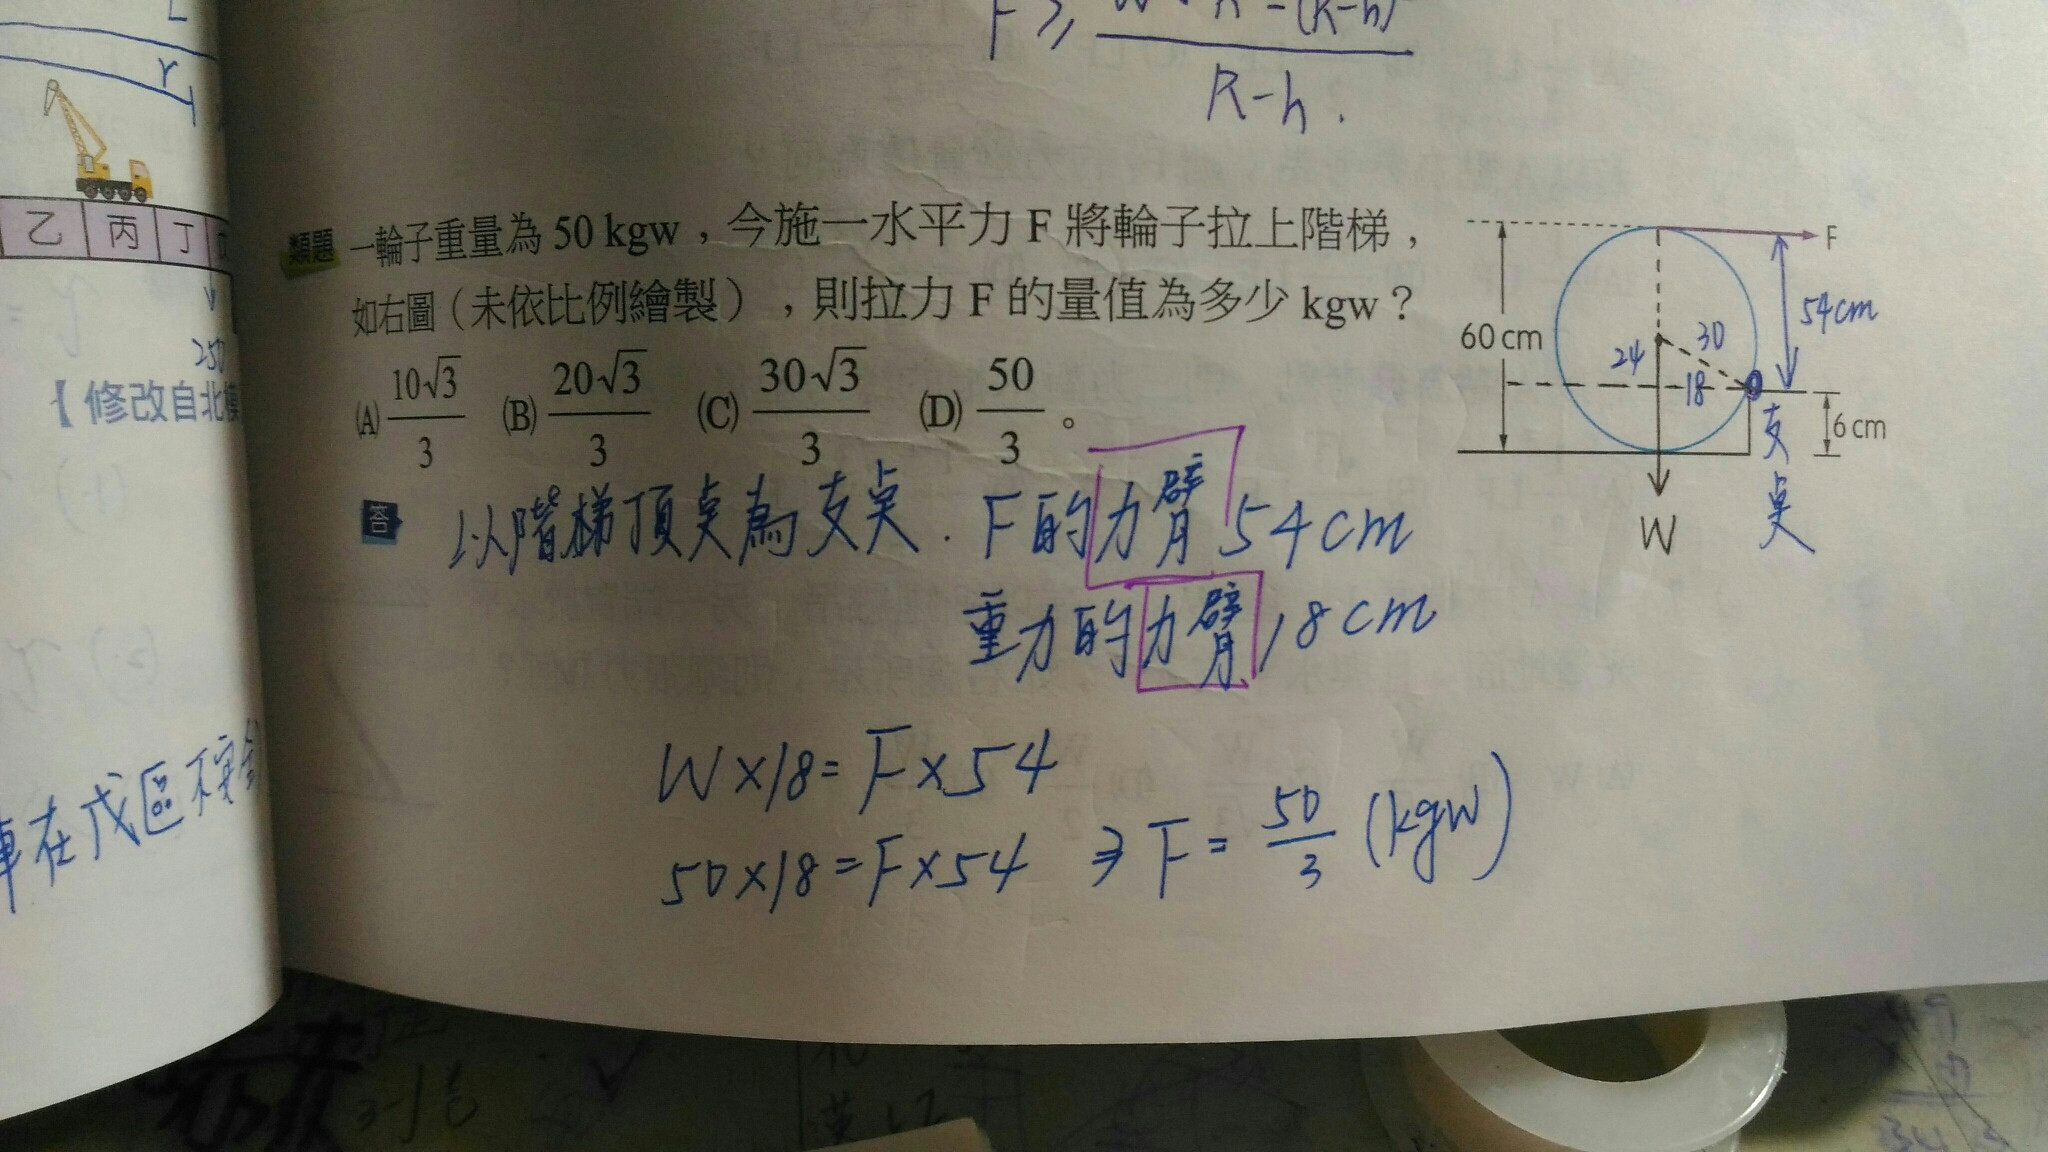 R-h.
類題 一輪子重量為 50 kgw，今施一水平力 F 將輪子拉上階梯，
如右圖（未依比例繪製），則拉力 F 的量值為多少 kgw？
(A) 10√3/3 (B) 20√3/3 (C) 30√3/3 (D) 50/3 。
F
60 cm
54cm
30
24
18
6 cm
支點
W
答 以階梯頂點為支點. F的力臂 54cm
重力的力臂 18cm
W×18=F×54
50×18=F×54 ⇒ F = 50/3 (kgw)
r
乙 丙 丁
250
【修改自北模
在戊區不安全